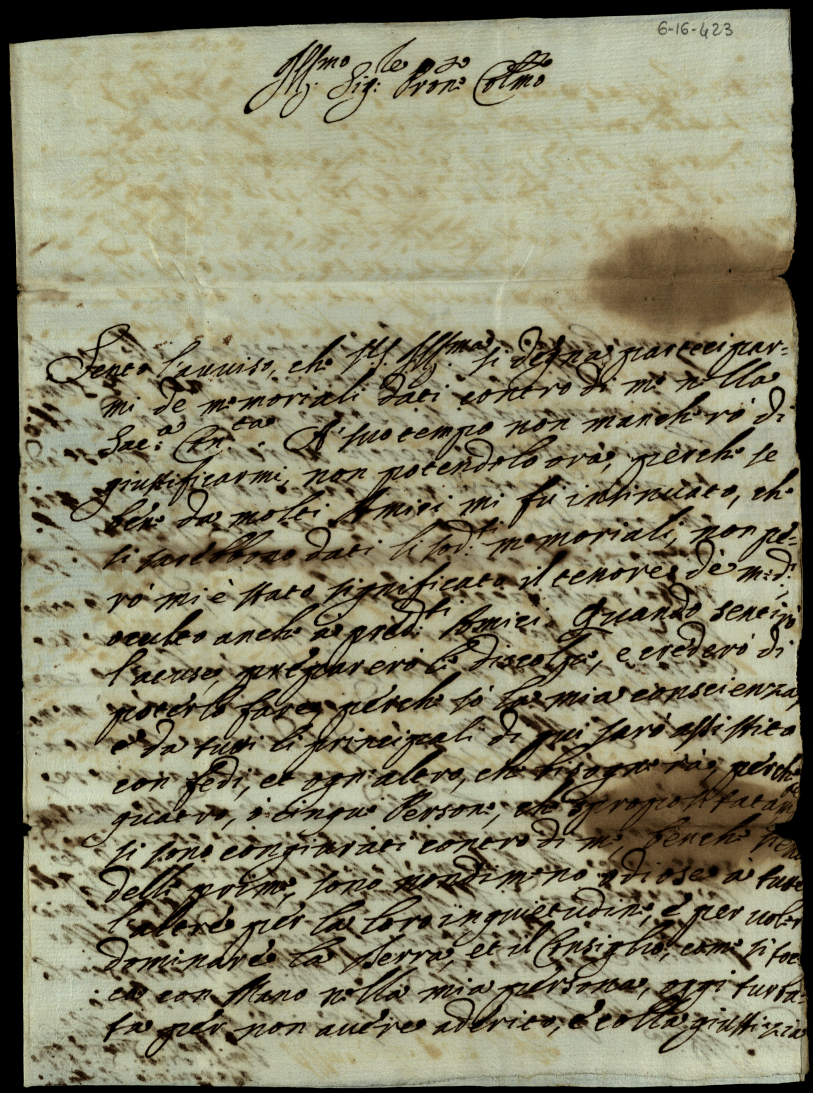 6-16-423
Ill.mo Sig.re Pron.e Col.mo
Sento l'auuiso, che V.S. Ill.ma si degna partecipar-
mi de memoriali dati contro di me nella
Sac.a Con.ta. A suo tempo non mancherò di
giustificarmi, non potendolo ora, perche se
bene da molti Amici mi fù insinuato, che
si sarebbono dati li sod.ti memoriali, non pe-
rò mi è stato significato il tenore de med.i
oculto anche a pred.ti Amici. Quando sentirò
l'acuse, prepararerò le discolpe, e crederò di
poterlo fare, perche sò la mia conscienza,
e da tutti li principali di qui sarò assistito
con fedi, et ogn'altro, che bisognerà, perche
quatro, ò cinque Persone, che spropositatam.te
si sono congiurati contro di me, benche siano
delle prime, sono nondimeno odiose à tutte
l'altre per la loro inquietudine, e per uoler
dominare la Terra, et il Consiglio, come si toc-
ca con Mano nella mia persona, oggi turba-
ta per non auere aderito, e colla giustizia